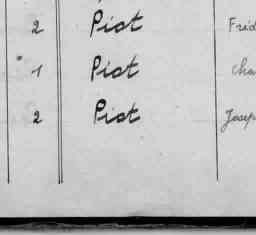 2 Piot Frid
1 Piot Cha
2 Piot Josep